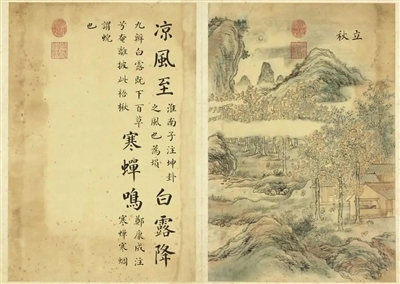 立秋
涼風至
淮南子注坤卦
之風也為損
白露降
九辯白露既下百草
兮奄離披此梧楸
寒蟬鳴
鄭康成注
寒蟬寒蜩
謂蜺
也